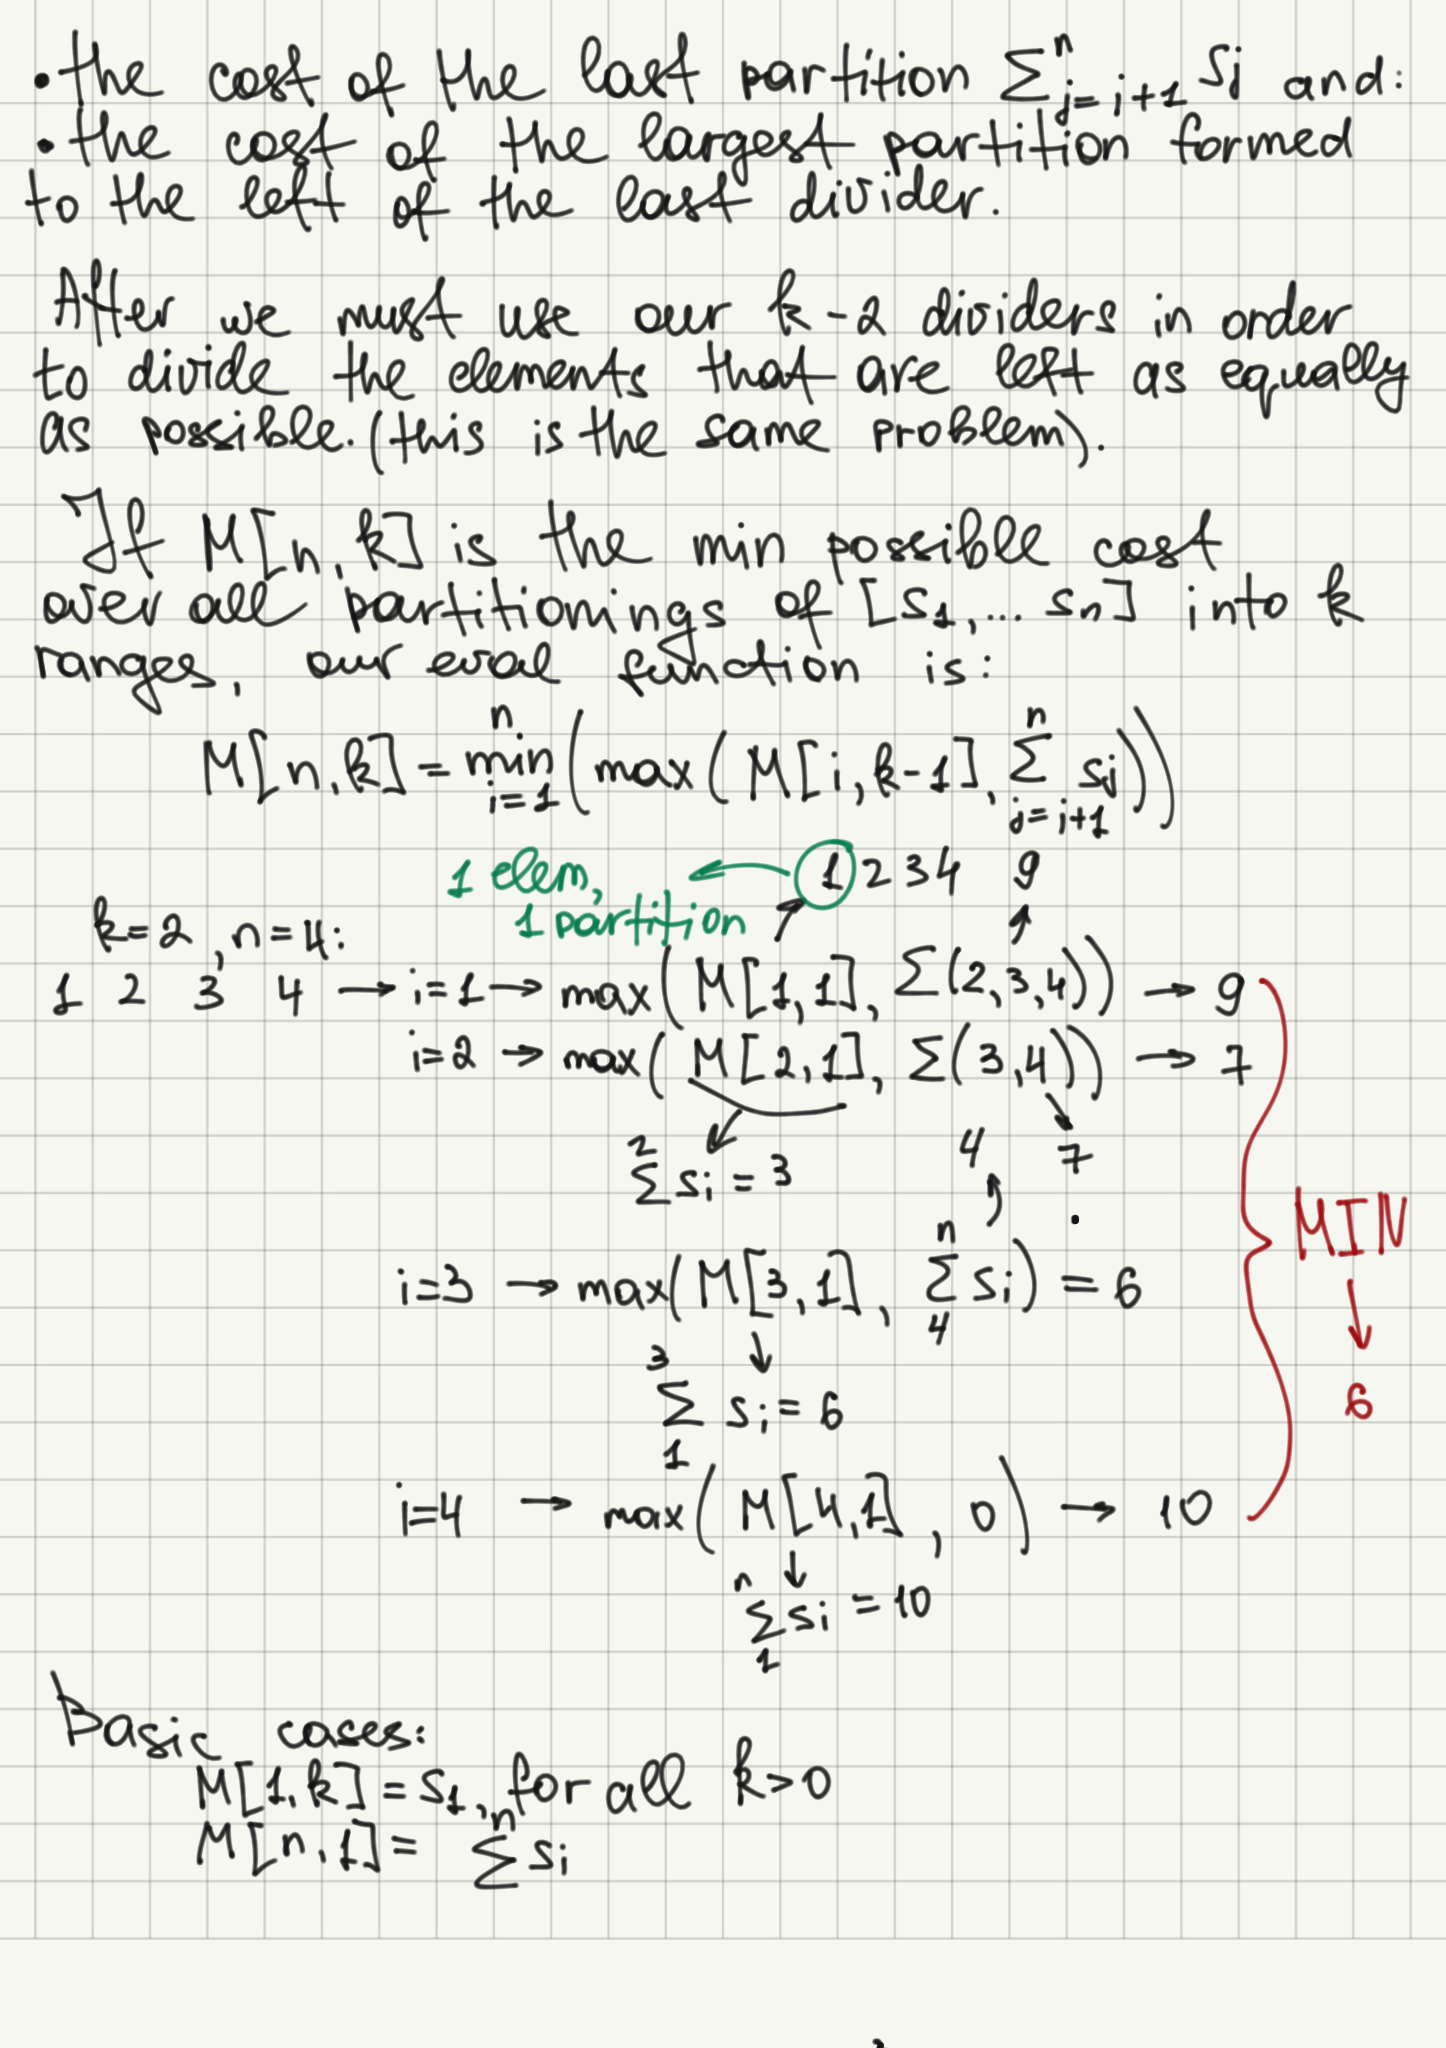 • the cost of the last partition Σ_{j=i+1}^{n} Sj and:
• the cost of the largest partition formed
to the left of the last divider.
After we must use our k-2 dividers in order
to divide the elements that are left as equally
as possible. (this is the same problem).
If M[n,k] is the min possible cost
over all partitionings of [S1,... Sn] into k
ranges, our eval function is:
M[n,k] = min_{i=1}^{n} (max(M[i,k-1], Σ_{j=i+1}^{n} sj))
1 elem, ← 1 2 3 4 9
1 partition
k=2, n=4:
1 2 3 4 → i=1 → max(M[1,1], Σ(2,3,4)) → 9
i=2 → max(M[2,1], Σ(3,4)) → 7
4 7
2
Σ si = 3
MIN
i=3 → max(M[3,1], Σ_{4}^{n} si) = 6
↓
Σ_{1}^{3} si = 6
6
i=4 → max(M[4,1], 0) → 10
↓
Σ_{1}^{n} si = 10
Basic cases:
M[1,k] = S1, for all k>0
M[n,1] = Σ^{n} si